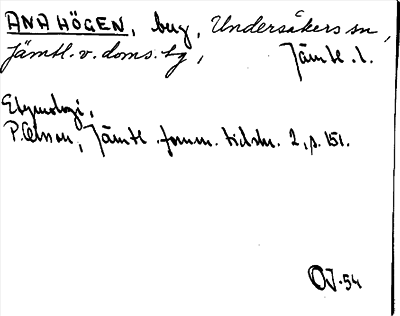 ANAHÖGEN, bug, Undersåkers sn,
Jämtl. v. doms. tg, Jämtl. l.
Etymologi,
P. Olsson, Jämtl. fornm. tidskr. 2, p. 151.
OJ-54